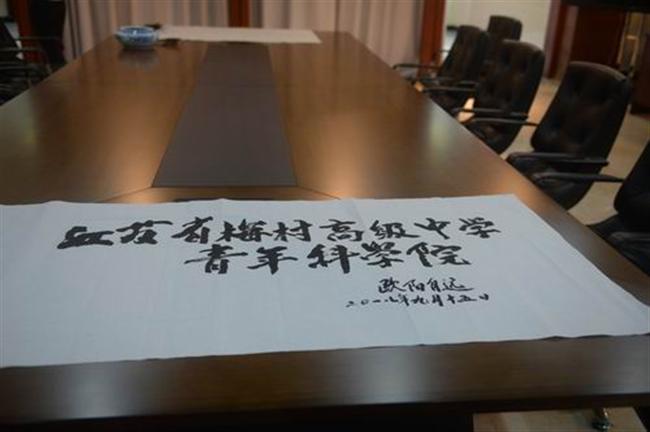 江苏省梅村高级中学
青年科学院
欧阳自远
二〇一八年九月十五日